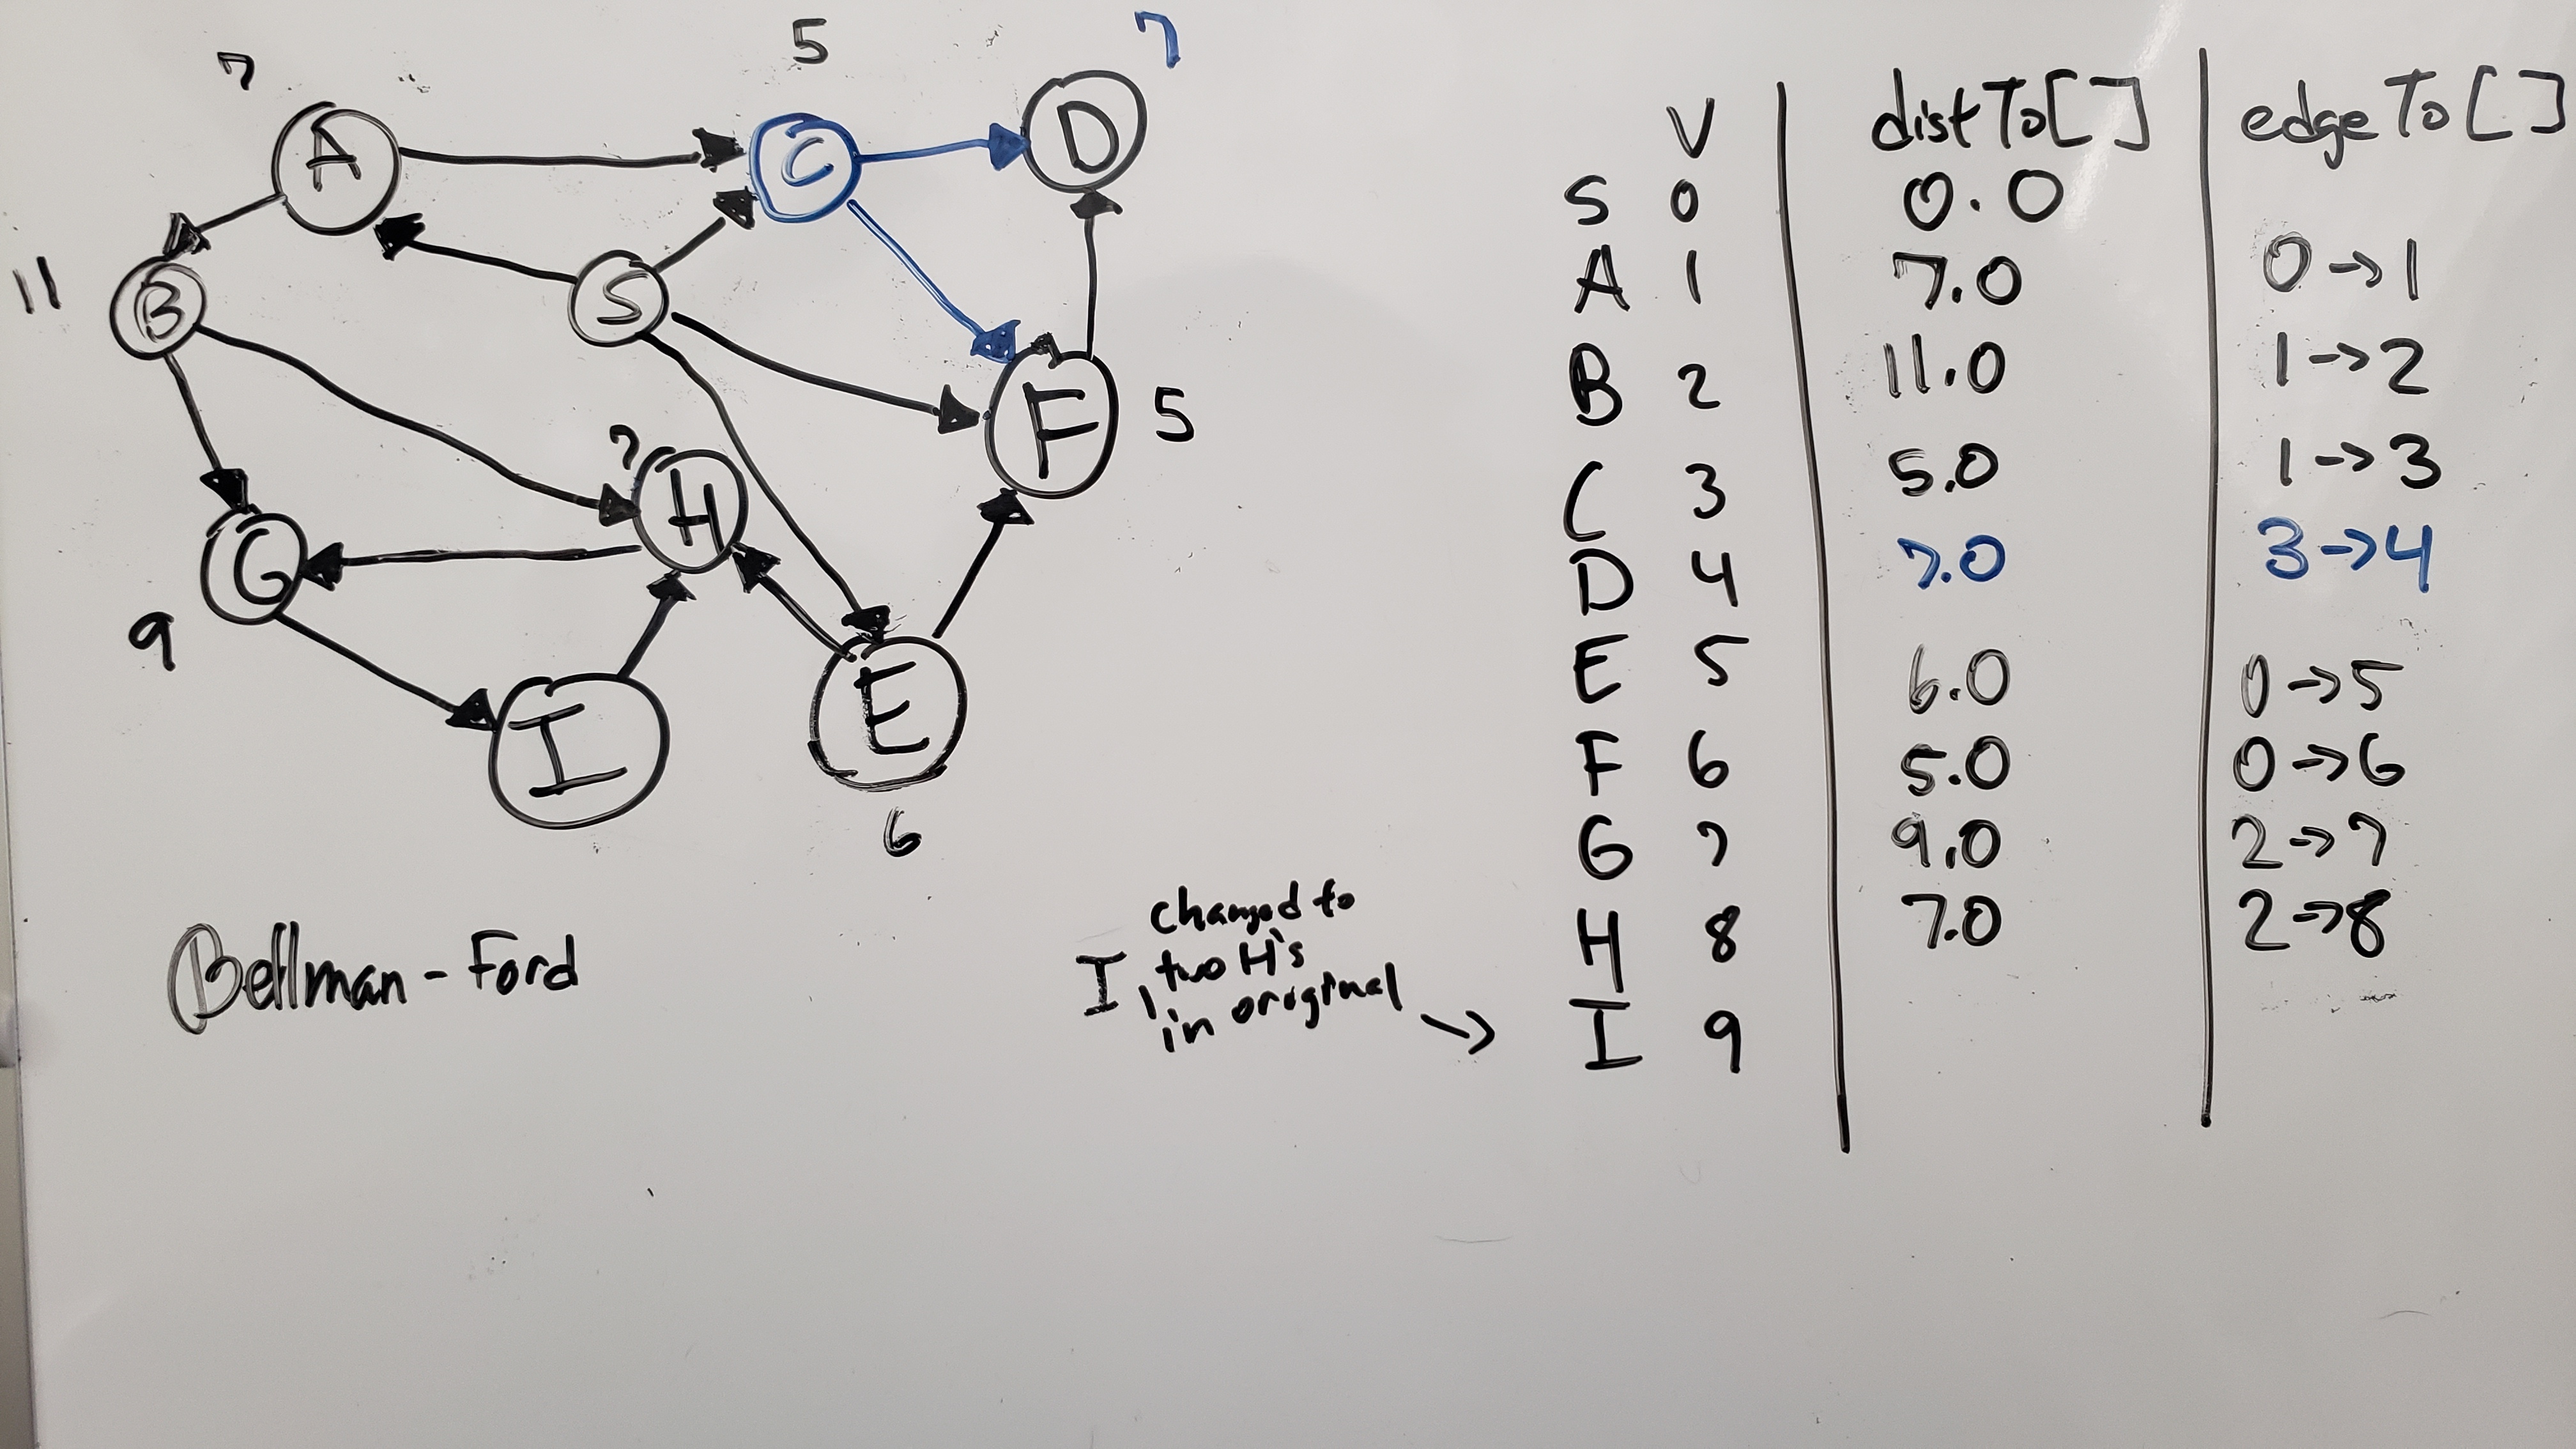 7
5
7
A
C
D
11
B
S
F
5
?
H
G
9
I
E
6
Bellman-Ford
I, changed to
two H's
in original ->
V distTo[] edgeTo[]
S 0 0.0
A 1 7.0 0->1
B 2 11.0 1->2
C 3 5.0 1->3
D 4 7.0 3->4
E 5 6.0 0->5
F 6 5.0 0->6
G 7 9.0 2->7
H 8 7.0 2->8
I 9